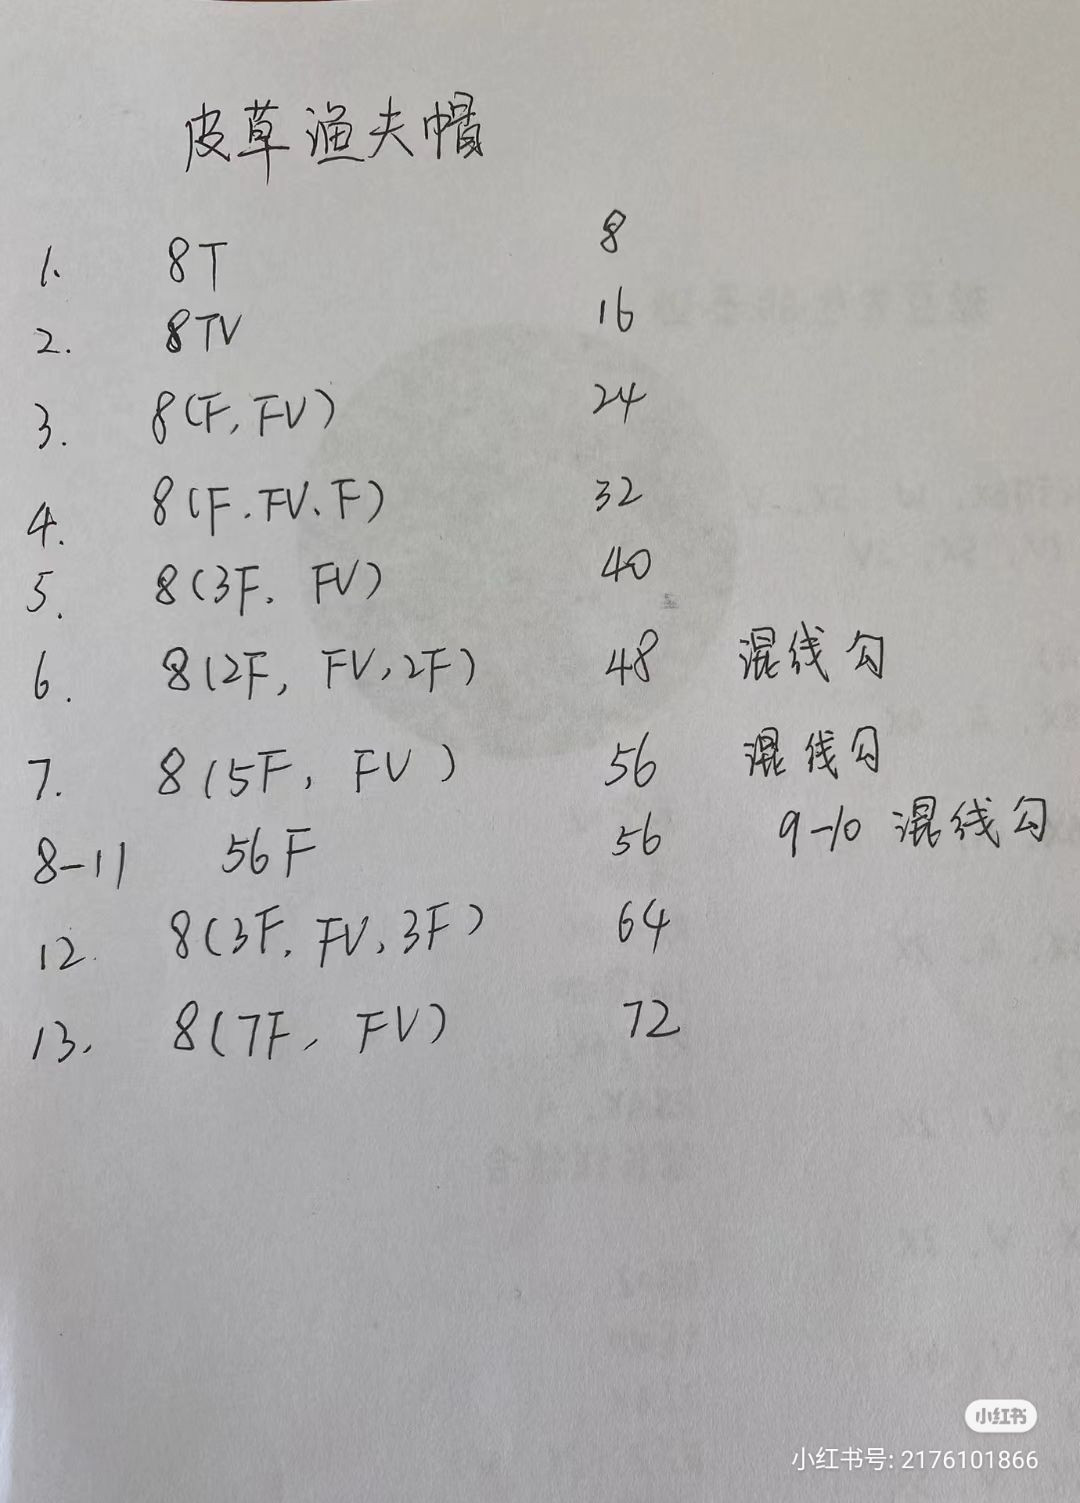 皮草渔夫帽
1. 8T 8
2. 8TV 16
3. 8(F, FV) 24
4. 8(F.FV、F) 32
5. 8(3F. FV) 40
6. 8(2F, FV,2F) 48 混线勾
7. 8(5F, FV) 56 混线勾
8-11 56F 56 9-10 混线勾
12. 8(3F. FV, 3F) 64
13. 8(7F, FV) 72
小红书
小红书号: 2176101866